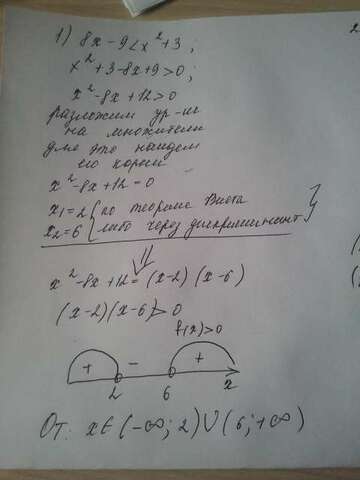 1) 8x - 9 < x² + 3;
x² + 3 - 8x + 9 > 0;
x² - 8x + 12 > 0
разложим ур-ие
на множители
для это найдем
его корни
x² - 8x + 12 = 0
x₁ = 2 { по теореме Виета
x₂ = 6 { либо через дискриминант }
x² - 8x + 12 = (x-2)(x-6)
(x-2)(x-6) > 0
f(x) > 0
+ - +
2 6 x
От: x ∈ (-∞; 2) ∪ (6; +∞)